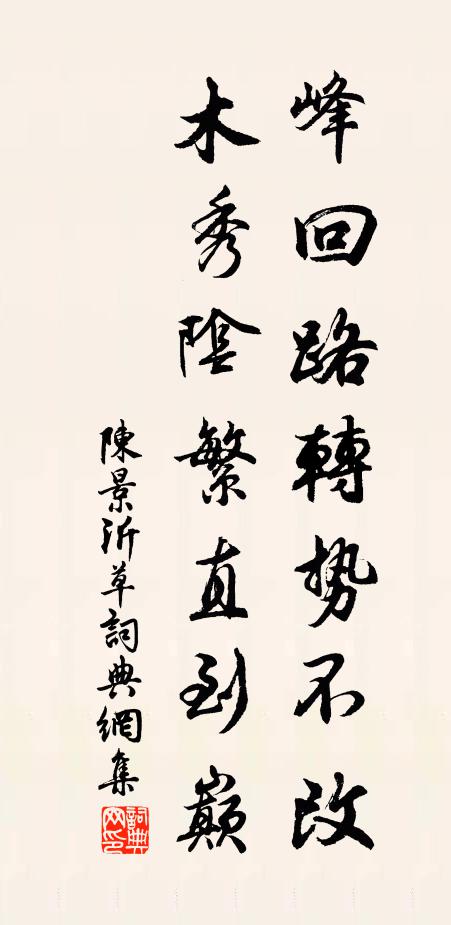 峰回路轉势不改
木秀陰繁直到巔
陳景沂草詞典網集
詞典网印